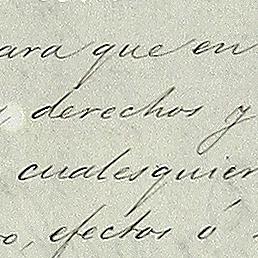 para que en
derechos y
cualesquier
efectos ó